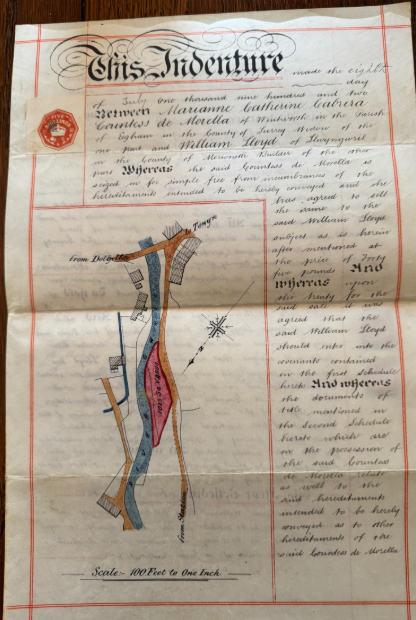 This Indenture made the eighth
day
of July One thousand nine hundred and two
Between Marianne Catherine Cabrera
Countess de Morella of Wentworth in the Parish
of Egham in the County of Surrey Widow of the
one part and William Lloyd of
in the County of Merioneth Builder of the other
part Whereas the said Countess de Morella is
seized in fee simple free from incumbrances of the
hereditaments intended to be hereby conveyed and she
has agreed to sell
the same to the
said William Lloyd
subject as is herein
after mentioned at
the price of Forty
five pounds And
whereas upon
the treaty for the
said sale it was
agreed that the
said William Lloyd
should enter into the
covenants contained
in the first Schedule
hereto And whereas
the documents of
title mentioned in
the Second Schedule
hereto which are
in the possession of
the said Countess
de Morella relate
as well to the
said hereditaments
intended to be hereby
conveyed as to other
hereditaments of the
said Countess de Morella
FIVE
to Towyn
from Dolgelley
RIVER
Scale:- 100 Feet to One Inch